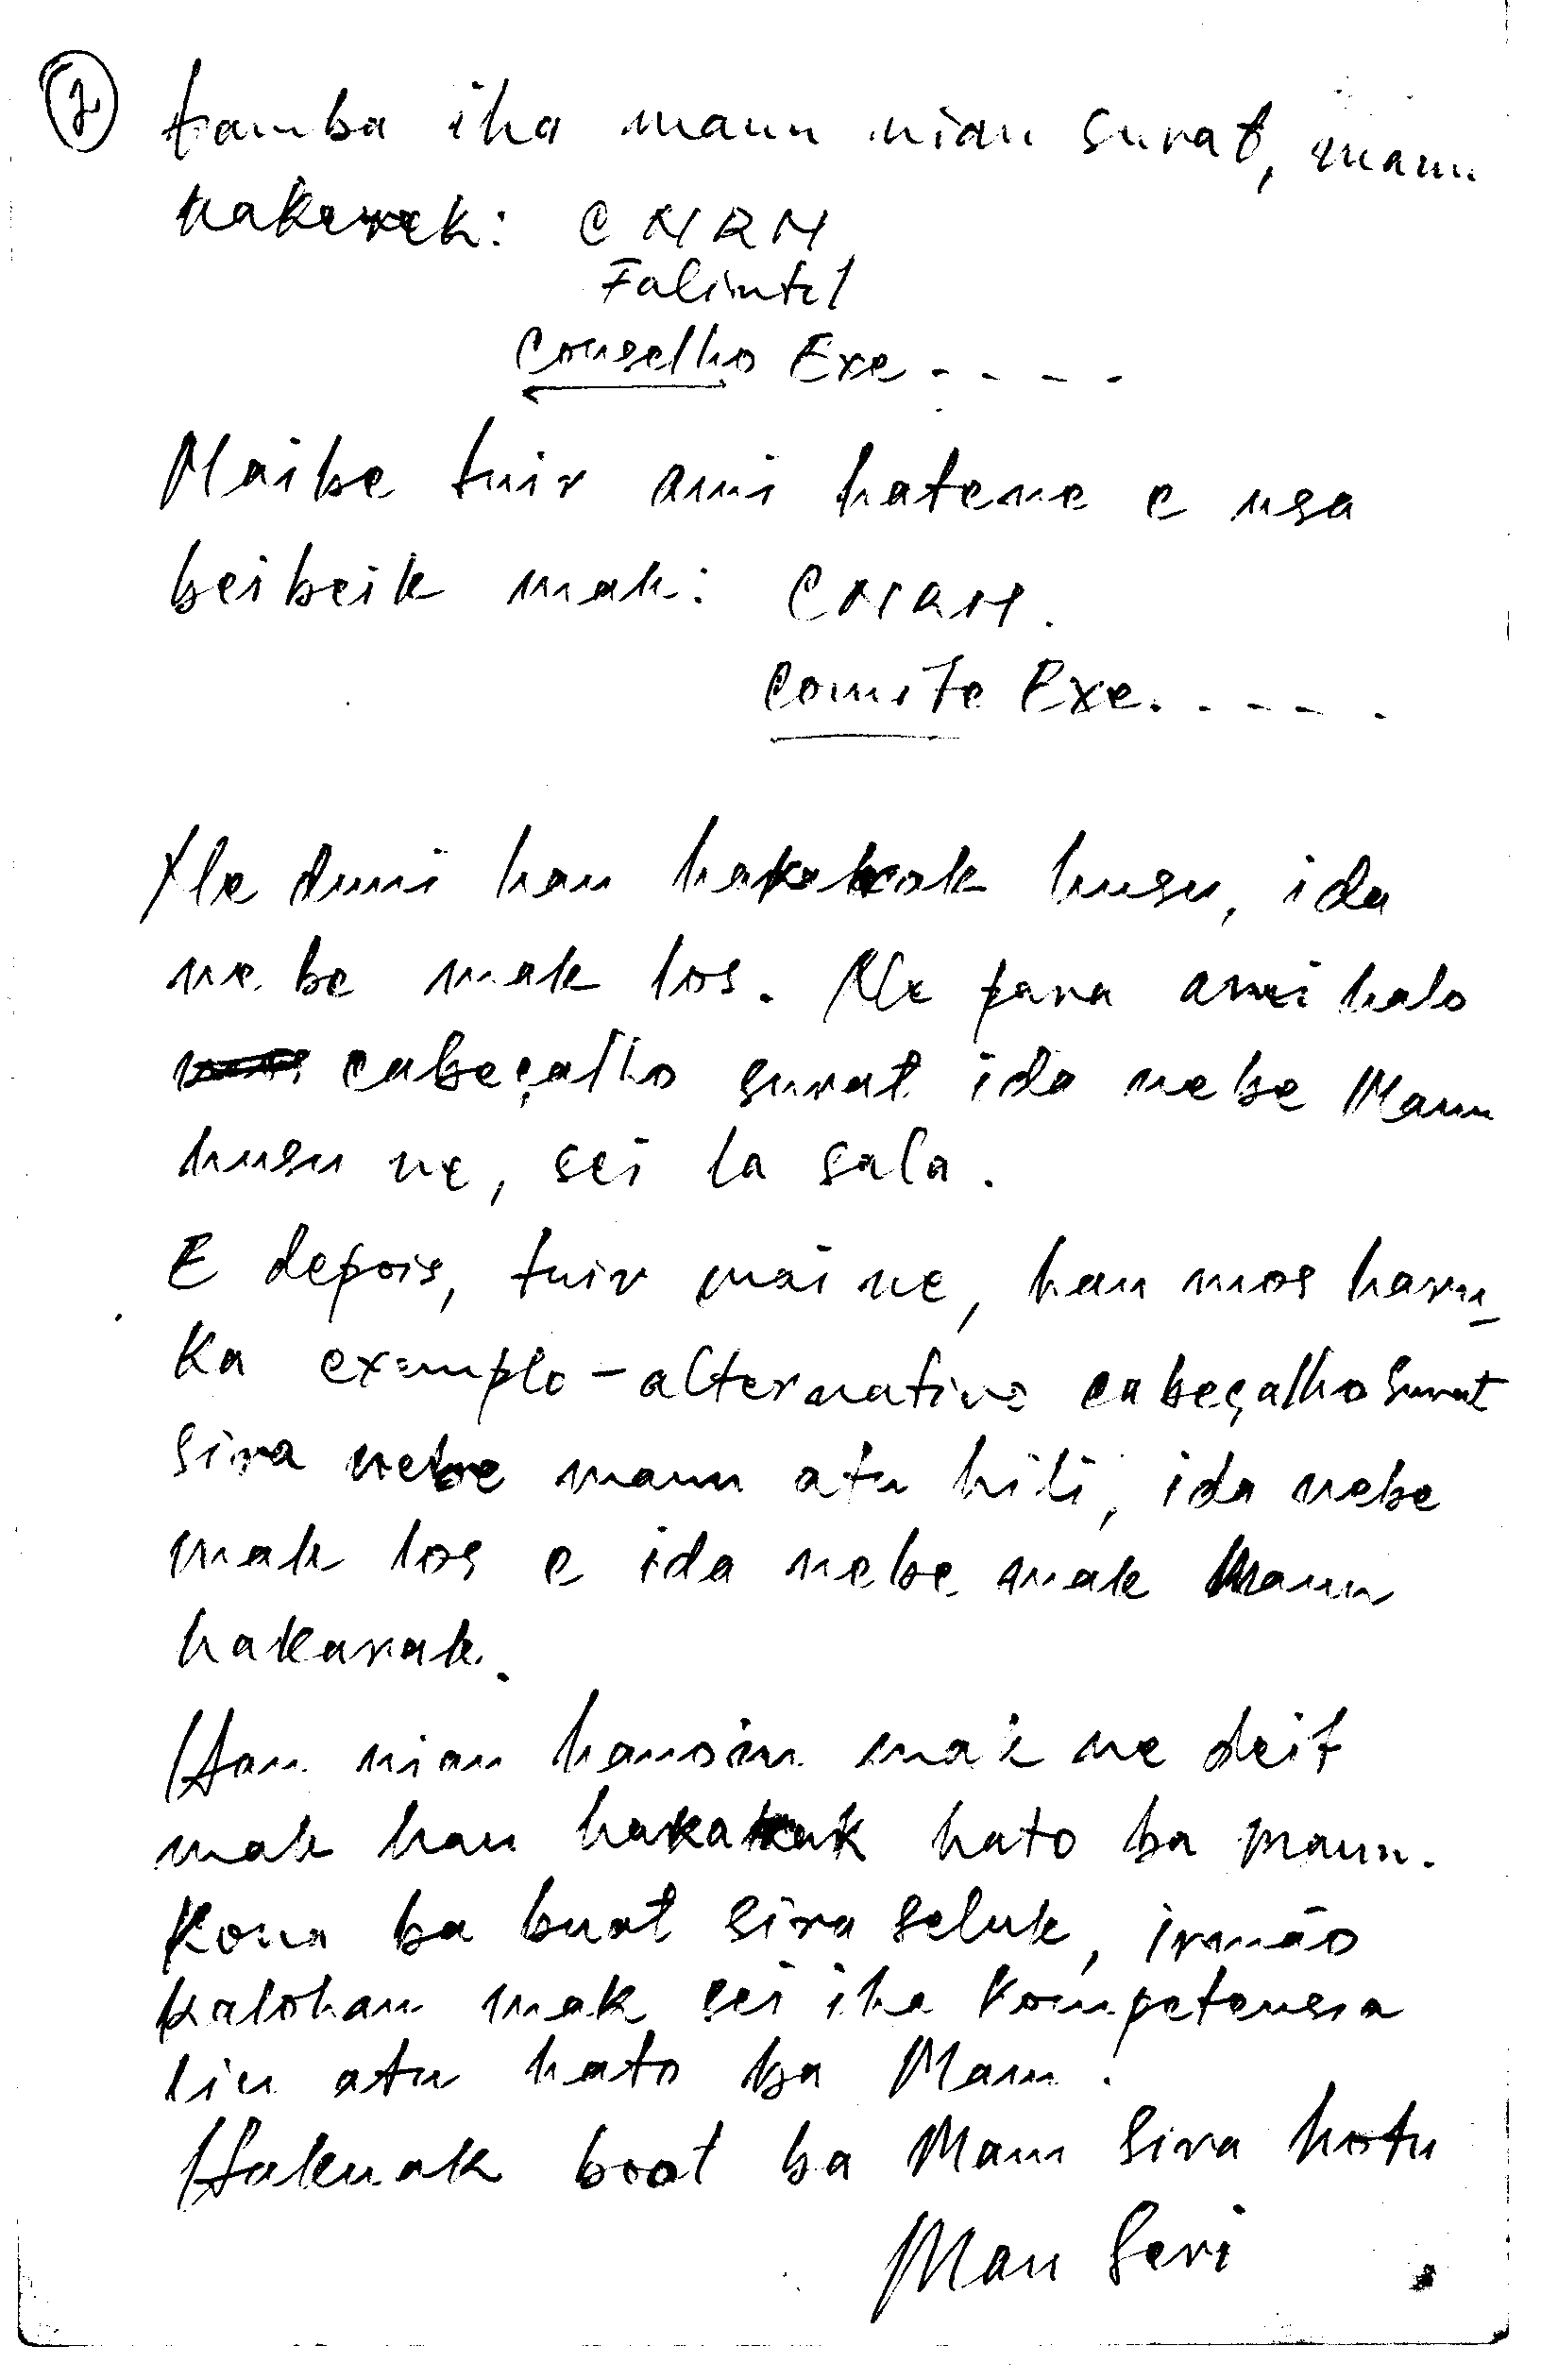 2
tamba iha maun nian surat, maun
hakerek: CNRM
Falintil
Conselho Exe - - - -
Maibe tuir ami hatene e usa
beibeik mak: CNRM.
Comite Exe. - - - - .
Ne duni hau hakarak husu, ida
nebe mak los. Ne para ami halo
cabeçalho surat ida nebe Maun
husu ne, sei la sala.
E depois, tuir mai ne, hau mos haru_
ka exemplo - alternativo cabeçalho surat
sira nebe maun atu hili, ida nebe
mak los e ida nebe mak Maun
hakarak.
Hau nian hanoin mak ne deit
mak hau hakarak hato ba Maun.
Kona ba buat sira seluk, irmão
Kalohan mak sei iha Kompetensia
liu atu hato ba Maun.
Hakuak boot ba Maun sira hotu
Mau Seri